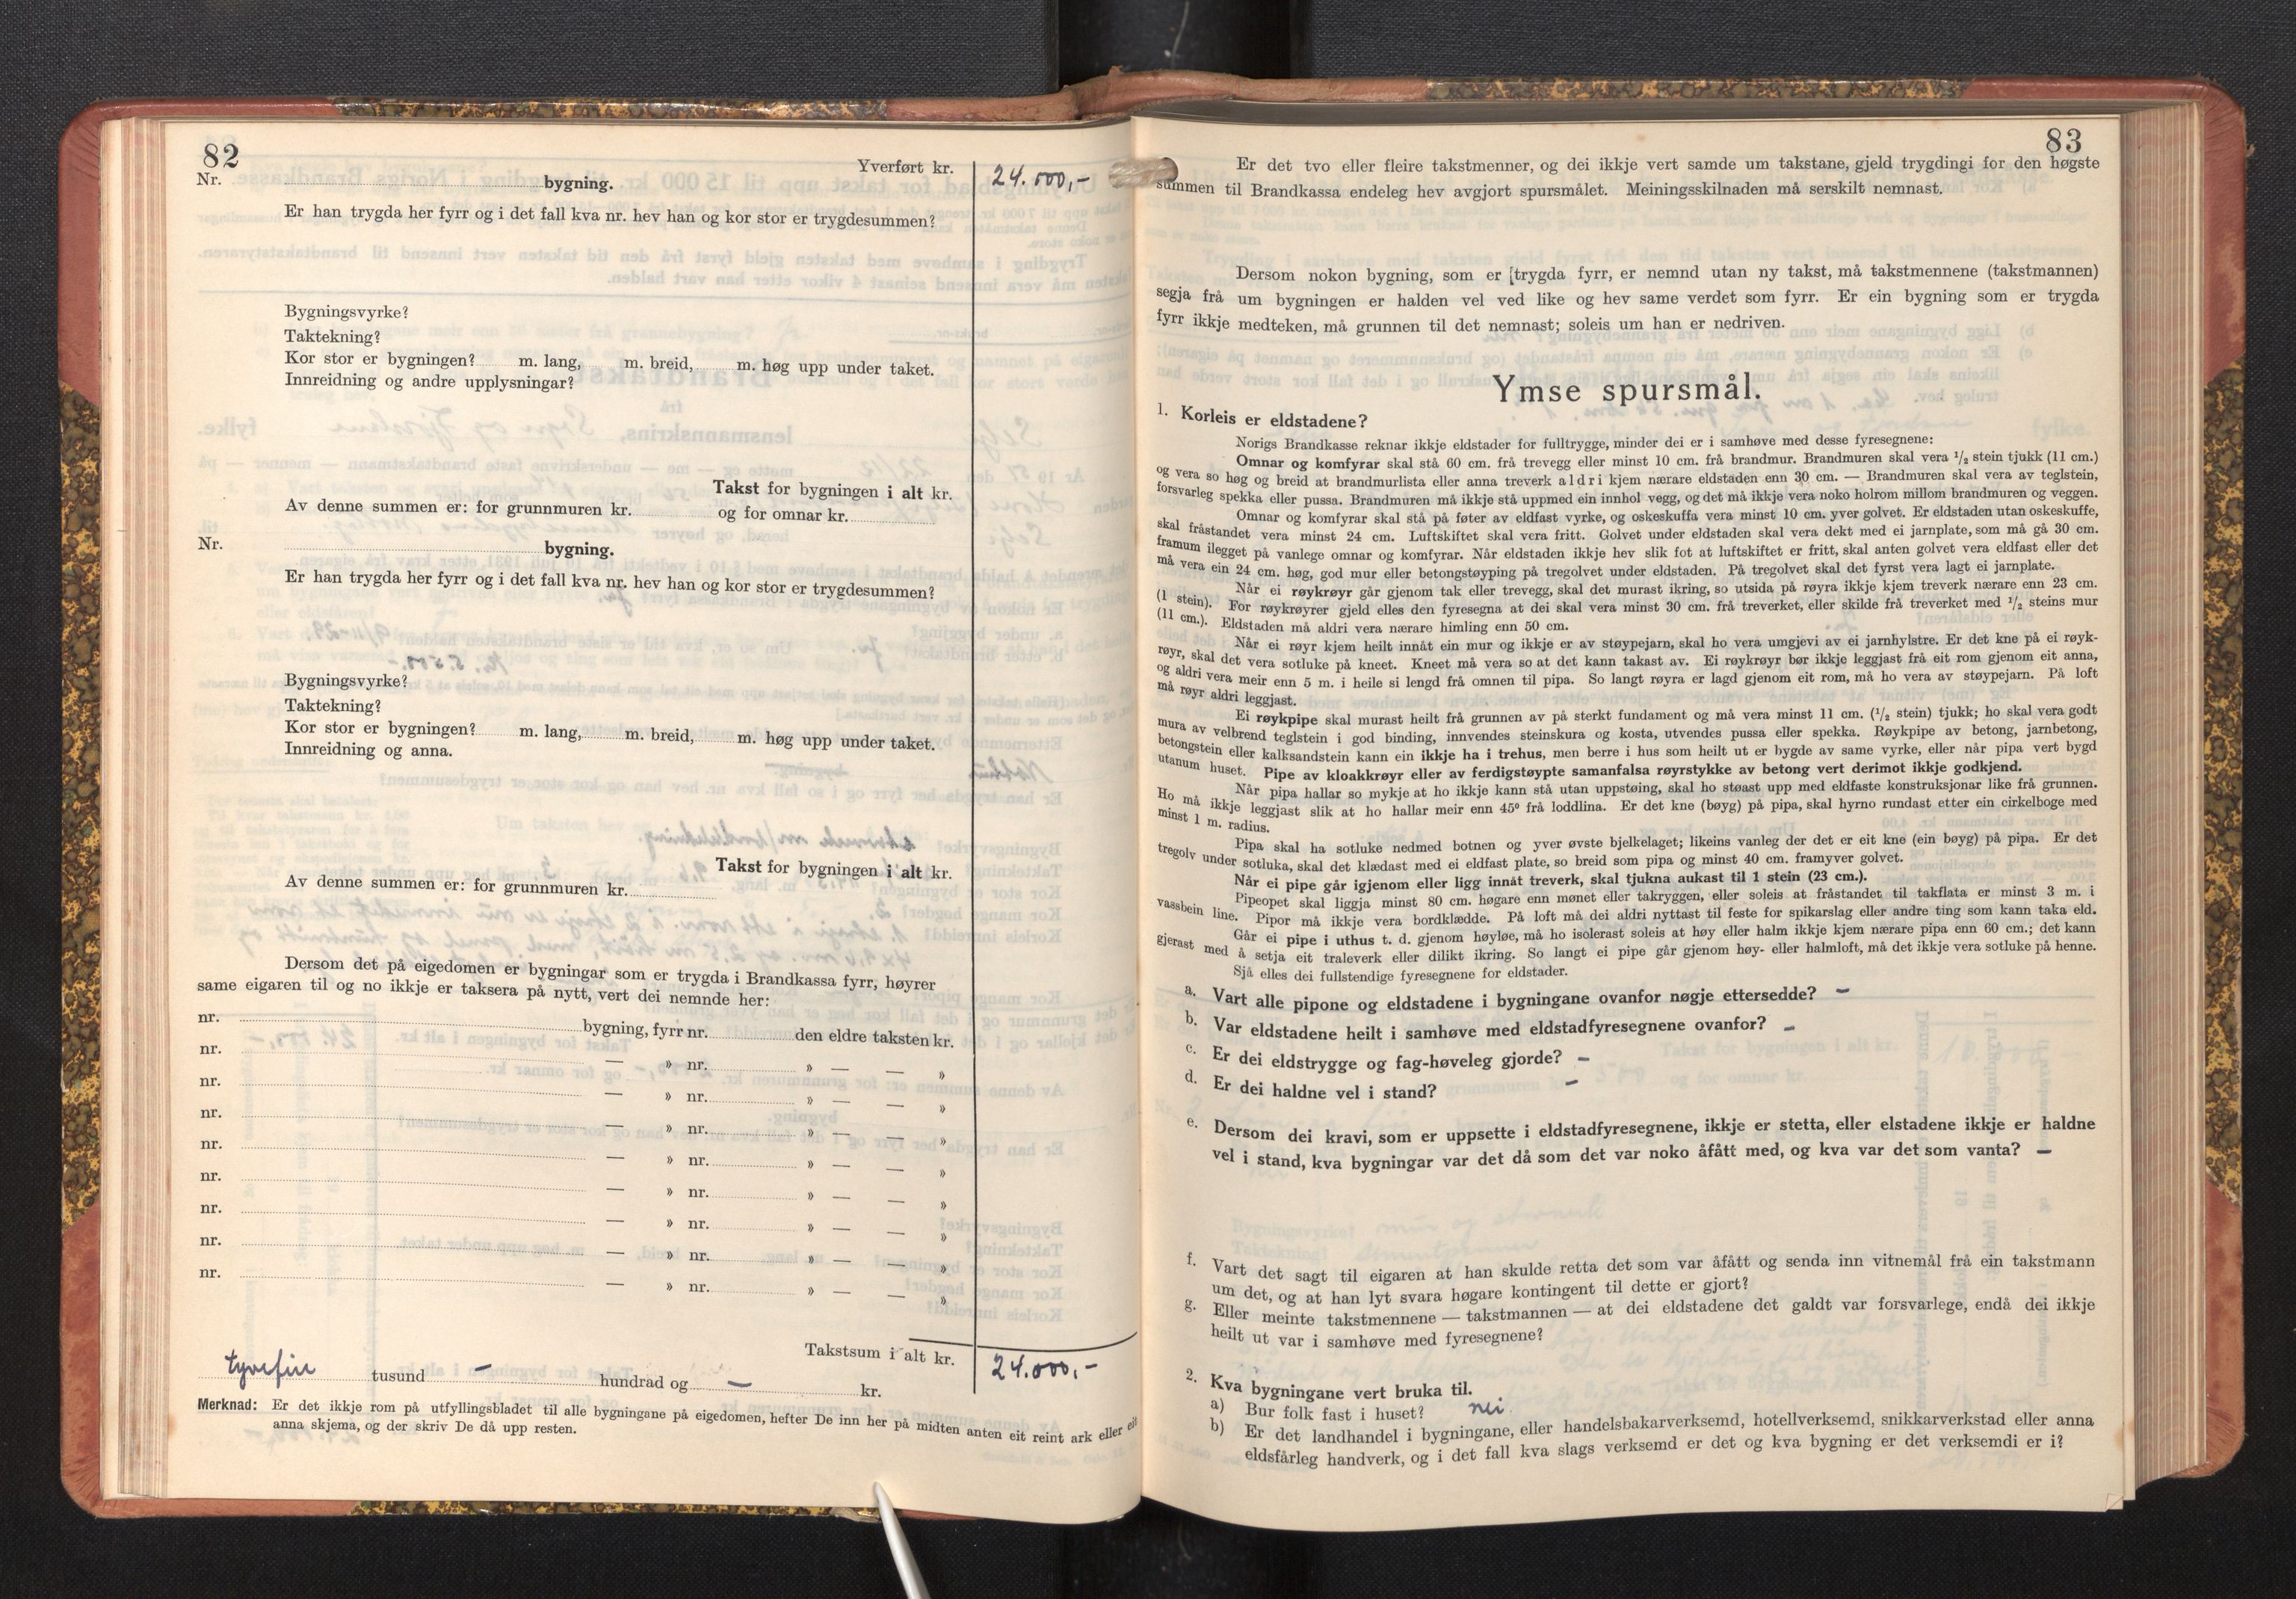 82
Yverført kr.
24.000,-
Nr. bygning.
Er han trygda her fyrr og i det fall kva nr. hev han og kor stor er trygdesummen?
Bygningsvyrke?
Taktekning?
Kor stor er bygningen? m. lang, m. breid, m. høg upp under taket.
Innreidning og andre upplysningar?
Takst for bygningen i alt kr.
Av denne summen er: for grunnmuren kr. og for omnar kr.
Nr. bygning.
Er han trygda her fyrr og i det fall kva nr. hev han og kor stor er trygdesummen?
Bygningsvyrke?
Taktekning?
Kor stor er bygningen? m. lang, m. breid, m. høg upp under taket.
Innreidning og anna.
Takst for bygningen i alt kr.
Av denne summen er: for grunnmuren kr.
Dersom det på eigedomen er bygningar som er trygda i Brandkassa fyrr, høyrer
same eigaren til og no ikkje er taksera på nytt, vert dei nemnde her:
nr. bygning, fyrr nr. den eldre taksten kr.
nr. — » nr. » — — »
nr. — » nr. » — — »
nr. — » nr. » — — »
nr. — » nr. » — — »
nr. — » nr. » — — »
nr. — » nr. » — — »
nr. — » nr. » — — »
nr. — » nr. » — — »
Takstsum i alt kr.
24.000,-
tyvefire tusund — hundrad og — kr.
Merknad: Er det ikkje rom på utfyllingsbladet til alle bygningane på eigedomen, hefter De inn her på midten anten eit reint ark eller eit
anna skjema, og der skriv De då upp resten.
83
Er det tvo eller fleire takstmenner, og dei ikkje vert samde um takstane, gjeld trygdingi for den høgste
summen til Brandkassa endeleg hev avgjort spursmålet. Meiningsskilnaden må serskilt nemnast.
Dersom nokon bygning, som er [trygda fyrr, er nemnd utan ny takst, må takstmennene (takstmannen)
segja frå um bygningen er halden vel ved like og hev same verdet som fyrr. Er ein bygning som er trygda
fyrr ikkje medteken, må grunnen til det nemnast; soleis um han er nedriven.
Ymse spursmål.
1. Korleis er eldstadene?
Norigs Brandkasse reknar ikkje eldstader for fulltrygge, minder dei er i samhøve med desse fyresegnene:
Omnar og komfyrar skal stå 60 cm. frå trevegg eller minst 10 cm. frå brandmur. Brandmuren skal vera 1/2 stein tjukk (11 cm.)
og vera so høg og breid at brandmurlista eller anna treverk aldri kjem nærare eldstaden enn 30 cm. — Brandmuren skal vera av teglstein,
forsvarleg spekka eller pussa. Brandmuren må ikkje stå uppmed ein innhol vegg, og det må ikkje vera noko holrom millom brandmuren og veggen.
Omnar og komfyrar skal stå på føter av eldfast vyrke, og oskeskuffa vera minst 10 cm. yver golvet. Er eldstaden utan oskeskuffe,
skal fråstandet vera minst 24 cm. Luftskiftet skal vera fritt. Golvet under eldstaden skal vera dekt med ei jarnplate, som må gå 30 cm.
framum ilegget på vanlege omnar og komfyrar. Når eldstaden ikkje hev slik fot at luftskiftet er fritt, skal anten golvet vera eldfast eller det
må vera ein 24 cm. høg, god mur eller betongstøyping på tregolvet under eldstaden. På tregolvet skal det fyrst vera lagt ei jarnplate.
Når ei røykrøyr går gjenom tak eller trevegg, skal det murast ikring, so utsida på røyra ikkje kjem treverk nærare enn 23 cm.
(1 stein). For røykrøyrer gjeld elles den fyresegna at dei skal vera minst 30 cm. frå treverket, eller skilde frå treverket med 1/2 steins mur
(11 cm.). Eldstaden må aldri vera nærare himling enn 50 cm.
Når ei røyr kjem heilt innåt ein mur og ikkje er av støypejarn, skal ho vera umgjevi av ei jarnhylstre. Er det kne på ei røyk-
røyr, skal det vera sotluke på kneet. Kneet må vera so at det kann takast av. Ei røykrøyr bør ikkje leggjast frå eit rom gjenom eit anna,
og aldri vera meir enn 5 m. i heile si lengd frå omnen til pipa. So langt røyra er lagd gjenom eit rom, må ho vera av støypejarn. På loft
må røyr aldri leggjast.
Ei røykpipe skal murast heilt frå grunnen av på sterkt fundament og må vera minst 11 cm. (1/2 stein) tjukk; ho skal vera godt
mura av velbrend teglstein i god binding, innvendes steinskura og kosta, utvendes pussa eller spekka. Røykpipe av betong, jarnbetong,
betongstein eller kalksandstein kann ein ikkje ha i trehus, men berre i hus som heilt ut er bygde av same vyrke, eller når pipa vert bygd
utanum huset. Pipe av kloakkrøyr eller av ferdigstøypte samanfalsa røyrstykke av betong vert derimot ikkje godkjend.
Når pipa hallar so mykje at ho ikkje kann stå utan uppstøing, skal ho støast upp med eldfaste konstruksjonar like frå grunnen.
Ho må ikkje leggjast slik at ho hallar meir enn 45° frå loddlina. Er det kne (bøyg) på pipa, skal hyrno rundast etter ein cirkelboge med
minst 1 m. radius.
Pipa skal ha sotluke nedmed botnen og yver øvste bjelkelaget; likeins vanleg der det er eit kne (ein bøyg) på pipa. Er det
tregolv under sotluka, skal det klædast med ei eldfast plate, so breid som pipa og minst 40 cm. framyver golvet.
Når ei pipe går igjenom eller ligg innåt treverk, skal tjukna aukast til 1 stein (23 cm.).
Pipeopet skal liggja minst 80 cm. høgare enn mønet eller takryggen, eller soleis at fråstandet til takflata er minst 3 m. i
vassbein line. Pipor må ikkje vera bordklædde. På loft må dei aldri nyttast til feste for spikarslag eller andre ting som kann taka eld.
Går ei pipe i uthus t. d. gjenom høyløe, må ho isolerast soleis at høy eller halm ikkje kjem nærare pipa enn 60 cm.; det kann
gjerast med å setja eit traleverk eller dilikt ikring. So langt ei pipe går gjenom høy- eller halmloft, må det ikkje vera sotluke på henne.
Sjå elles dei fullstendige fyresegnene for eldstader.
a. Vart alle pipone og eldstadene i bygningane ovanfor nøgje ettersedde? —
b. Var eldstadene heilt i samhøve med eldstadfyresegnene ovanfor? —
c. Er dei eldstrygge og fag-høveleg gjorde? —
d. Er dei haldne vel i stand? —
e. Dersom dei kravi, som er uppsette i eldstadfyresegnene, ikkje er stetta, eller elstadene ikkje er haldne
vel i stand, kva bygningar var det då som det var noko åfått med, og kva var det som vanta? —
f. Vart det sagt til eigaren at han skulde retta det som var åfått og senda inn vitnemål frå ein takstmann
um det, og at han lyt svara høgare kontingent til dette er gjort?
g. Eller meinte takstmennene — takstmannen — at dei eldstadene det galdt var forsvarlege, endå dei ikkje
heilt ut var i samhøve med fyresegnene?
2. Kva bygningane vert bruka til.
a) Bur folk fast i huset? nei
b) Er det landhandel i bygningane, eller handelsbakarverksemd, hotellverksemd, snikkarverkstad eller anna
eldsfårleg handverk, og i det fall kva slags verksemd er det og kva bygning er det verksemdi er i?